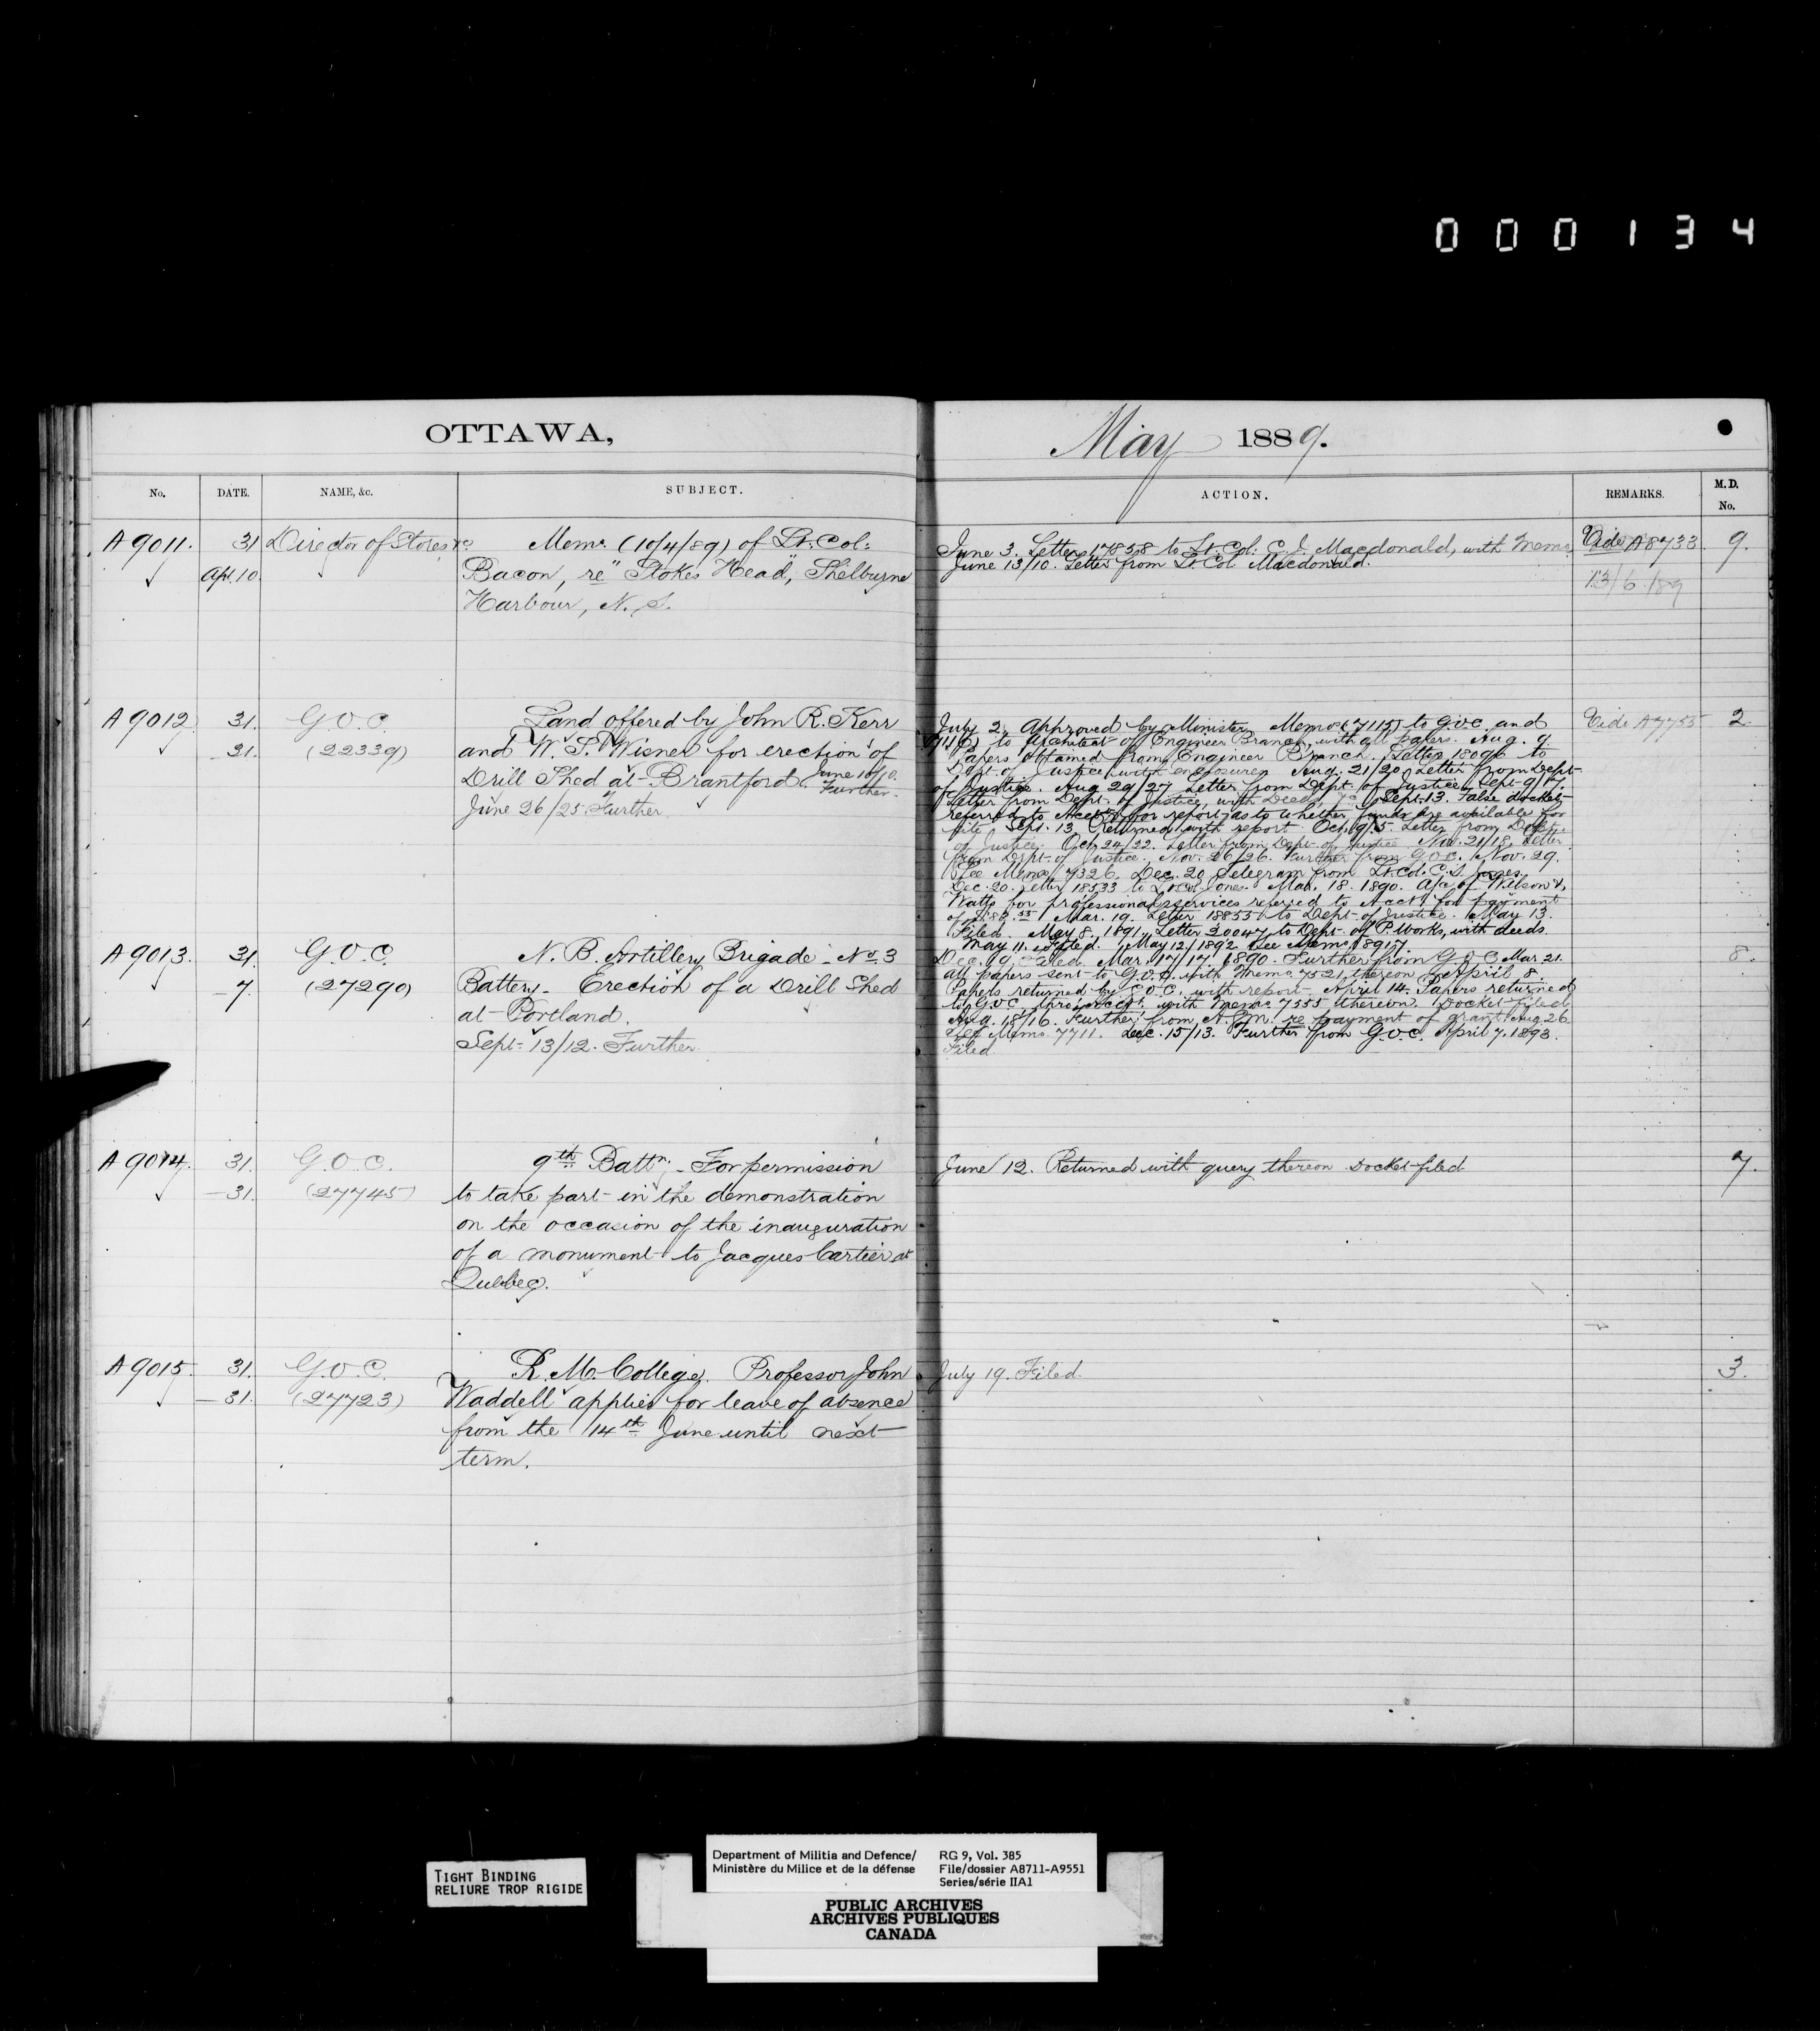 000134
OTTAWA, May 1889.
No. DATE. NAME, &c. SUBJECT. ACTION. REMARKS. M.D. No.
A 9011. 31 Director of Stores &c
Apl. 10
Memo. (10/4/89) of Lt. Col:
Bacon, re "Stokes Head", Shelburne
Harbour, N. S.
June 3. Letter 17858 to Lt. Col: C. J. Macdonald, with memo.
June 13/10. Letter from Lt. Col. Macdonald.
Vide A8733
13/6/89
9.
A 9012 31. G.O.C.
31. (22339)
Land offered by John R. Kerr
and W. S. Wisner for erection of
Drill Shed at Brantford. June 10/10.
Further.
June 26/25. Further.
July 2. Approved by Minister. Memo (7115) to G.O.C. and
(7116) to Architect of Engineer Branch, with all papers. Aug. 9
Papers obtained from Engineer Branch. Letter 18096 to
Dept. of Justice with enclosures. Aug. 21/20. Letter from Dept.
of Justice. Aug 29/27 Letter from Dept. of Justice. Sept. 9/7.
Letter from Dept. of Justice, with Deeds, &c. Sept. 13. False docket
referred to Acct. for report as to whether funds are available for
Sept. 13. Returned with report. Oct. 9/5. Letter from Dept.
of Justice. Oct. 24/22. Letter from Dept. of Justice. Nov. 21/18. Letter
from Dept. of Justice. Nov. 26/26. Further from G.O.C. Nov. 29.
See Memo 7326. Dec. 20 Telegram from Lt. Col. C. S. Jones.
Dec. 20. Letter 18533 to Lt. Col. Jones. Mar. 18. 1890. A/c of Wilson &
Watts for professional services referred to Acct. for payment
Mar. 19. Letter 18855 to Dept. of Justice. May 13.
Filed. May 8. 1891. Letter 20047 to Dept. of P. Works, with deeds.
May 11. Filed. May 12/1892 See Memo 8917.
Vide A7755
2
A 9013. 31. G.O.C.
7. (27290)
N. B. Artillery Brigade - No. 3
Battery - Erection of a Drill Shed
at Portland.
Sept. 13/12. Further.
Dec. 19. Filed. Mar. 17/17. 1890. Further from G.O.C. Mar 21.
all papers sent to G.O.C. with Memo 7521 thereon. April 8.
Papers returned by G.O.C. with report. April 14. Papers returned
to G.O.C. thro' Acct. with Memo 7555 thereon. Docket filed
Aug. 18/16. Further from A.G.M. re payment of grant. Aug 26
See Memo. 7711. Dec. 15/13. Further from G.O.C. April 7. 1893.
Filed.
8.
A 9014. 31. G.O.C.
31. (27745)
9th Battn. - For permission
to take part in the demonstration
on the occasion of the inauguration
of a monument to Jacques Cartier at
Quebec.
June 12. Returned with query thereon Docket filed
7.
A 9015. 31. G.O.C.
31. (27723)
R. M. College. Professor John
Waddell applies for leave of absence
from the 14th June until next
term.
July 19. Filed.
3.
TIGHT BINDING
RELIURE TROP RIGIDE
Department of Militia and Defence/
Ministère du Milice et de la défense
RG 9, Vol. 385
File/dossier A8711-A9551
Series/série IIA1
PUBLIC ARCHIVES
ARCHIVES PUBLIQUES
CANADA